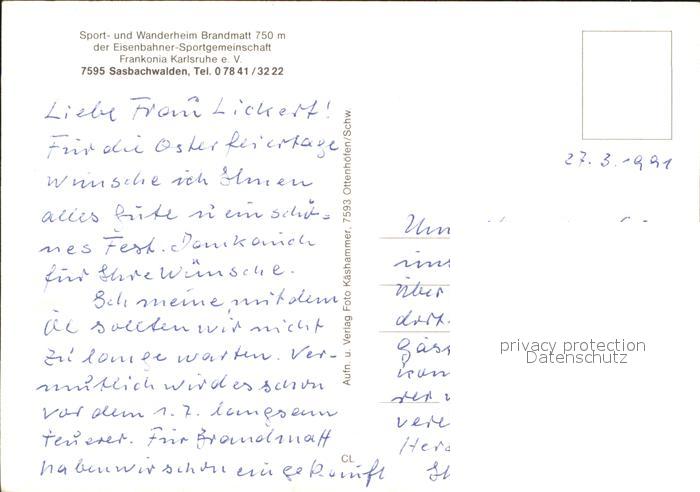 Sport- und Wanderheim Brandmatt 750 m
der Eisenbahner-Sportgemeinschaft
Frankonia Karlsruhe e. V.
7595 Sasbachwalden, Tel. 0 78 41 / 32 22
27.3.1991
Liebe Frau Lickert!
Für die Osterfeiertage
wünsche ich Ihnen
alles Gute u ein schö-
nes Fest. Dank auch
für Ihre Wünsche.
Ich meine, mit dem
Öl sollten wir nicht
zu lange warten. Ver-
mutlich wird es schon
vor dem 1.7. langsam
teurer. Für Brandmatt
haben wir schon eingekauft
Aufn. u. Verlag Foto Käshammer, 7593 Ottenhöfen/Schw.
CL
Um
ins
über
dort
gäs
kon
rer
vere
Her
Ih
privacy protection
Datenschutz